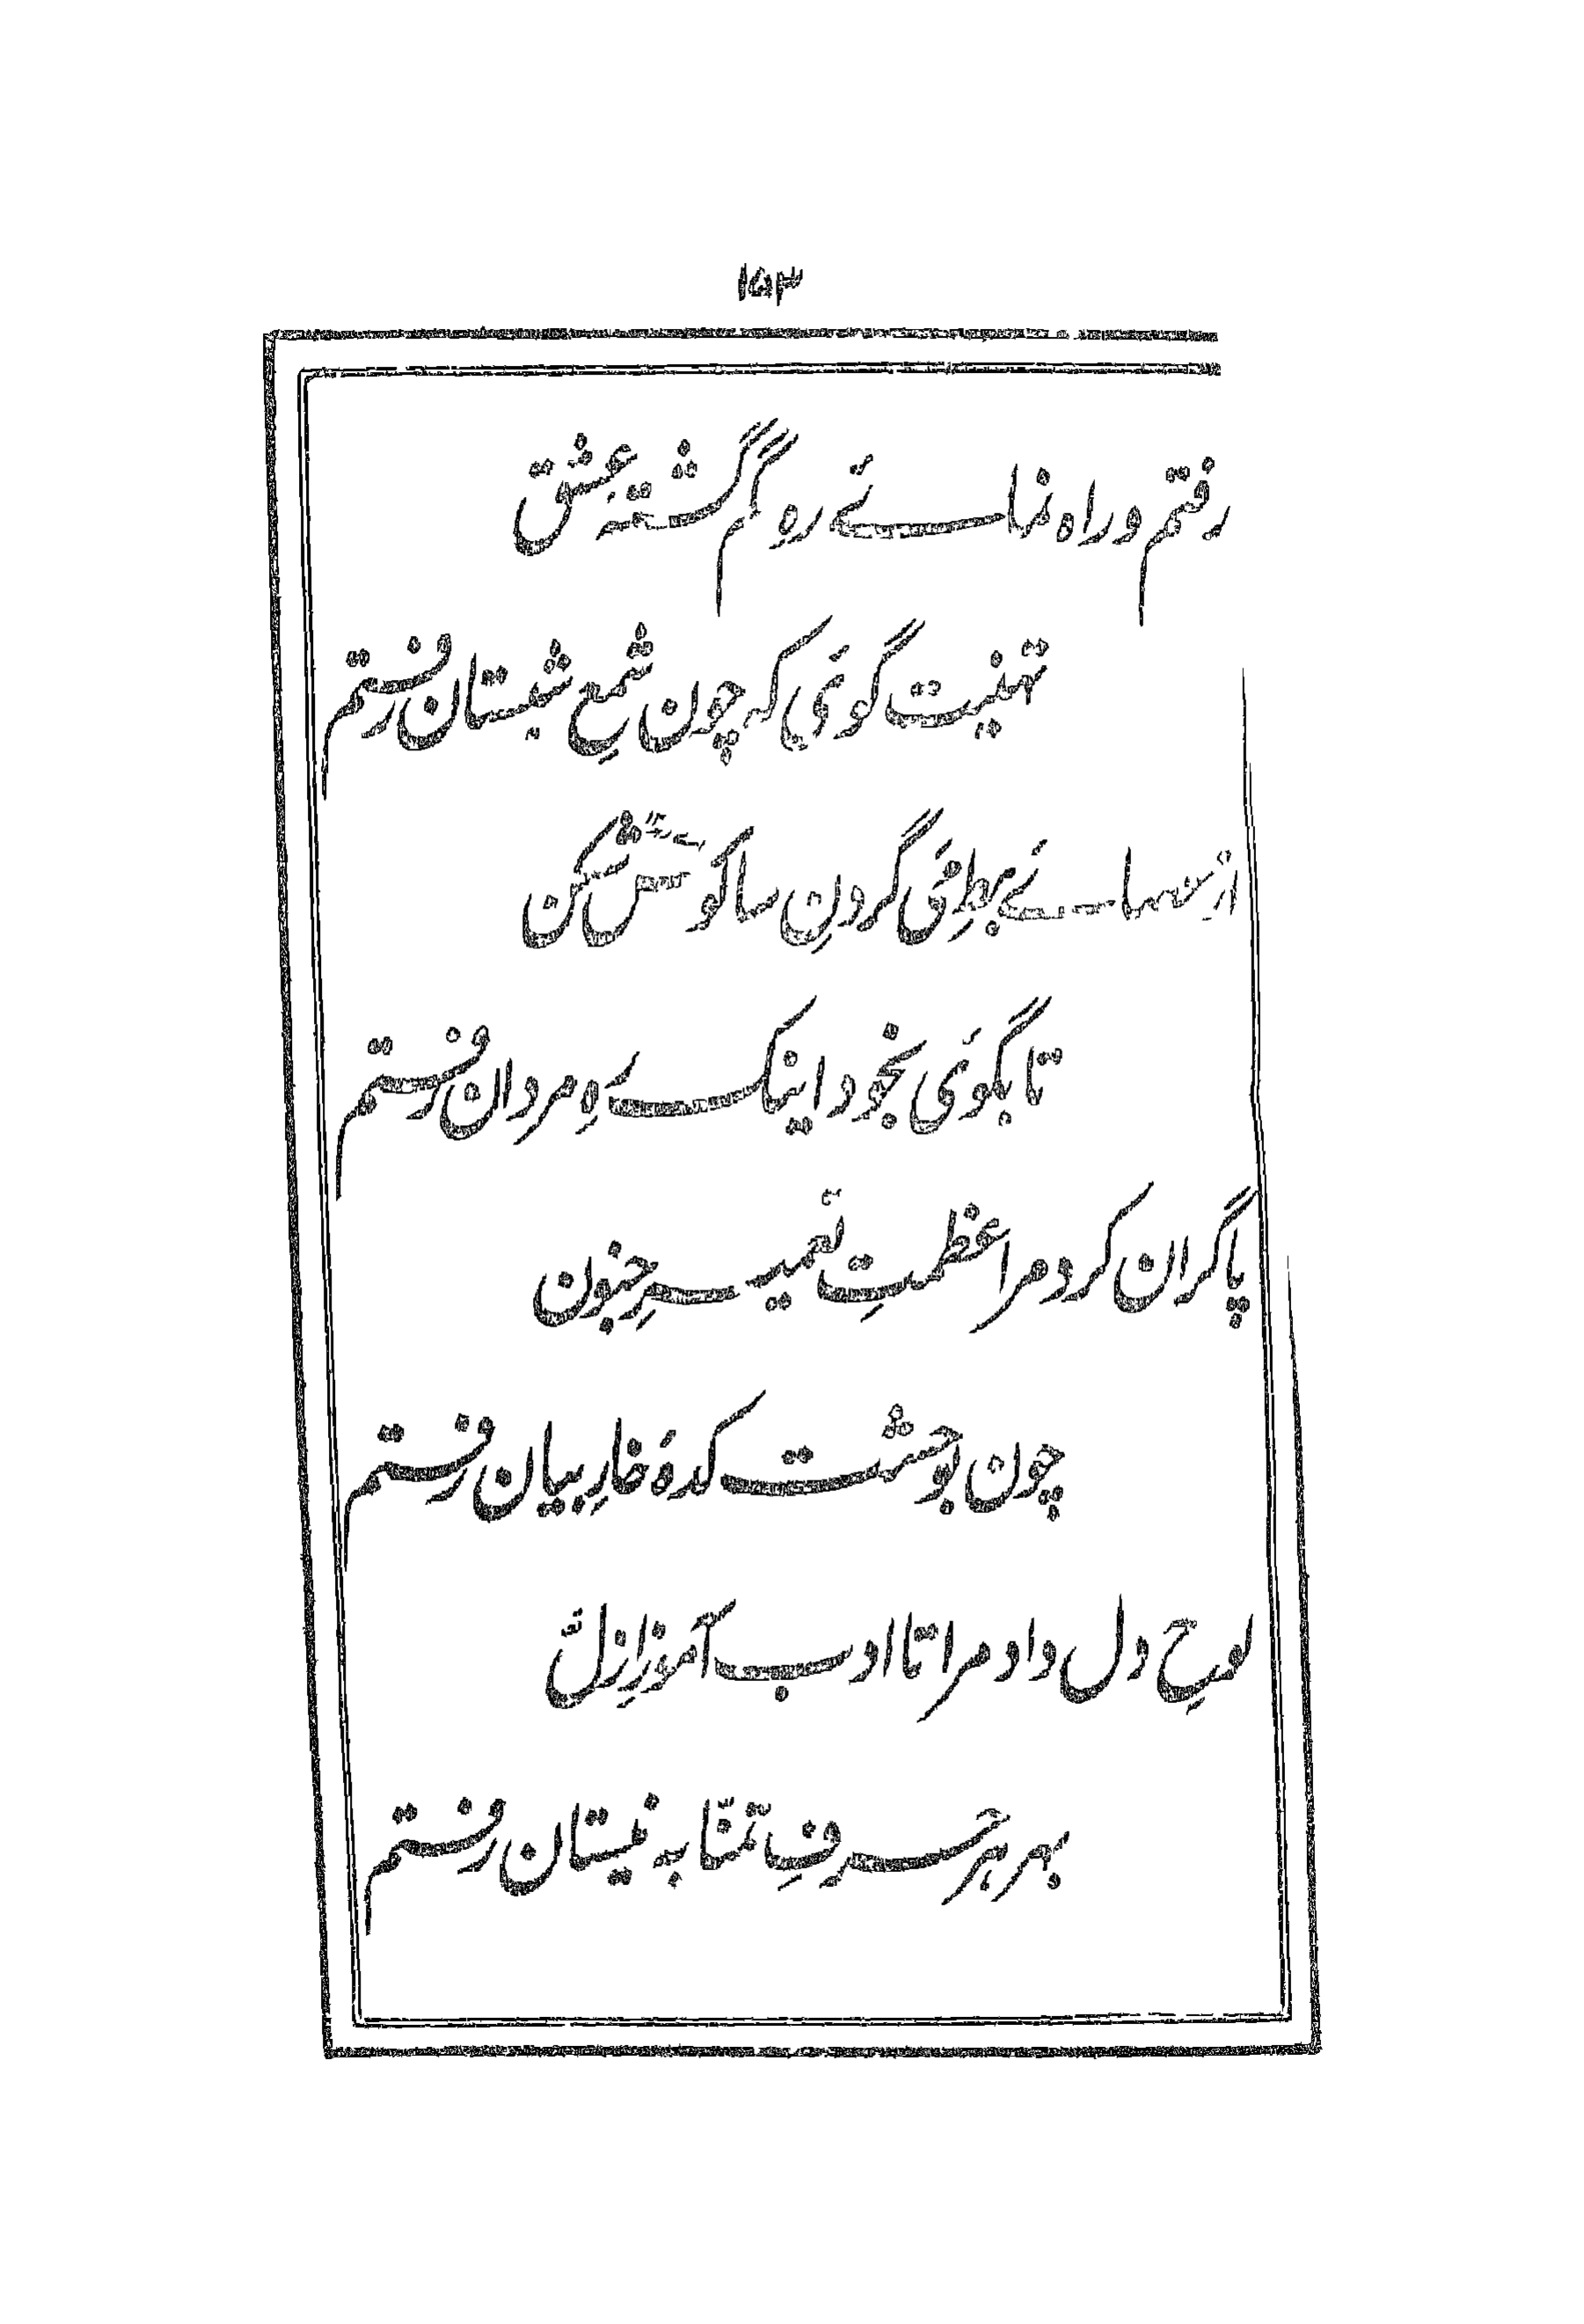 ۱۵۳
رفتم و راه نمائے رہِ گم گشتۂ عشق
تہنیت گوئی کہ چون شمعِ شبستان رفتم
گردونِ کوشش کن
تا بگوئی بخود اینک رہِ مردان رفتم
پا گران کرد مرا عظمتِ تعمیرِ جنون
چون بوحشت کدۂ خارِ بیان رفتم
لوحِ دل داد مرا تا ادب آموزِ ازل
بہر ہر حرفِ تمنّا بہ نیستان رفتم